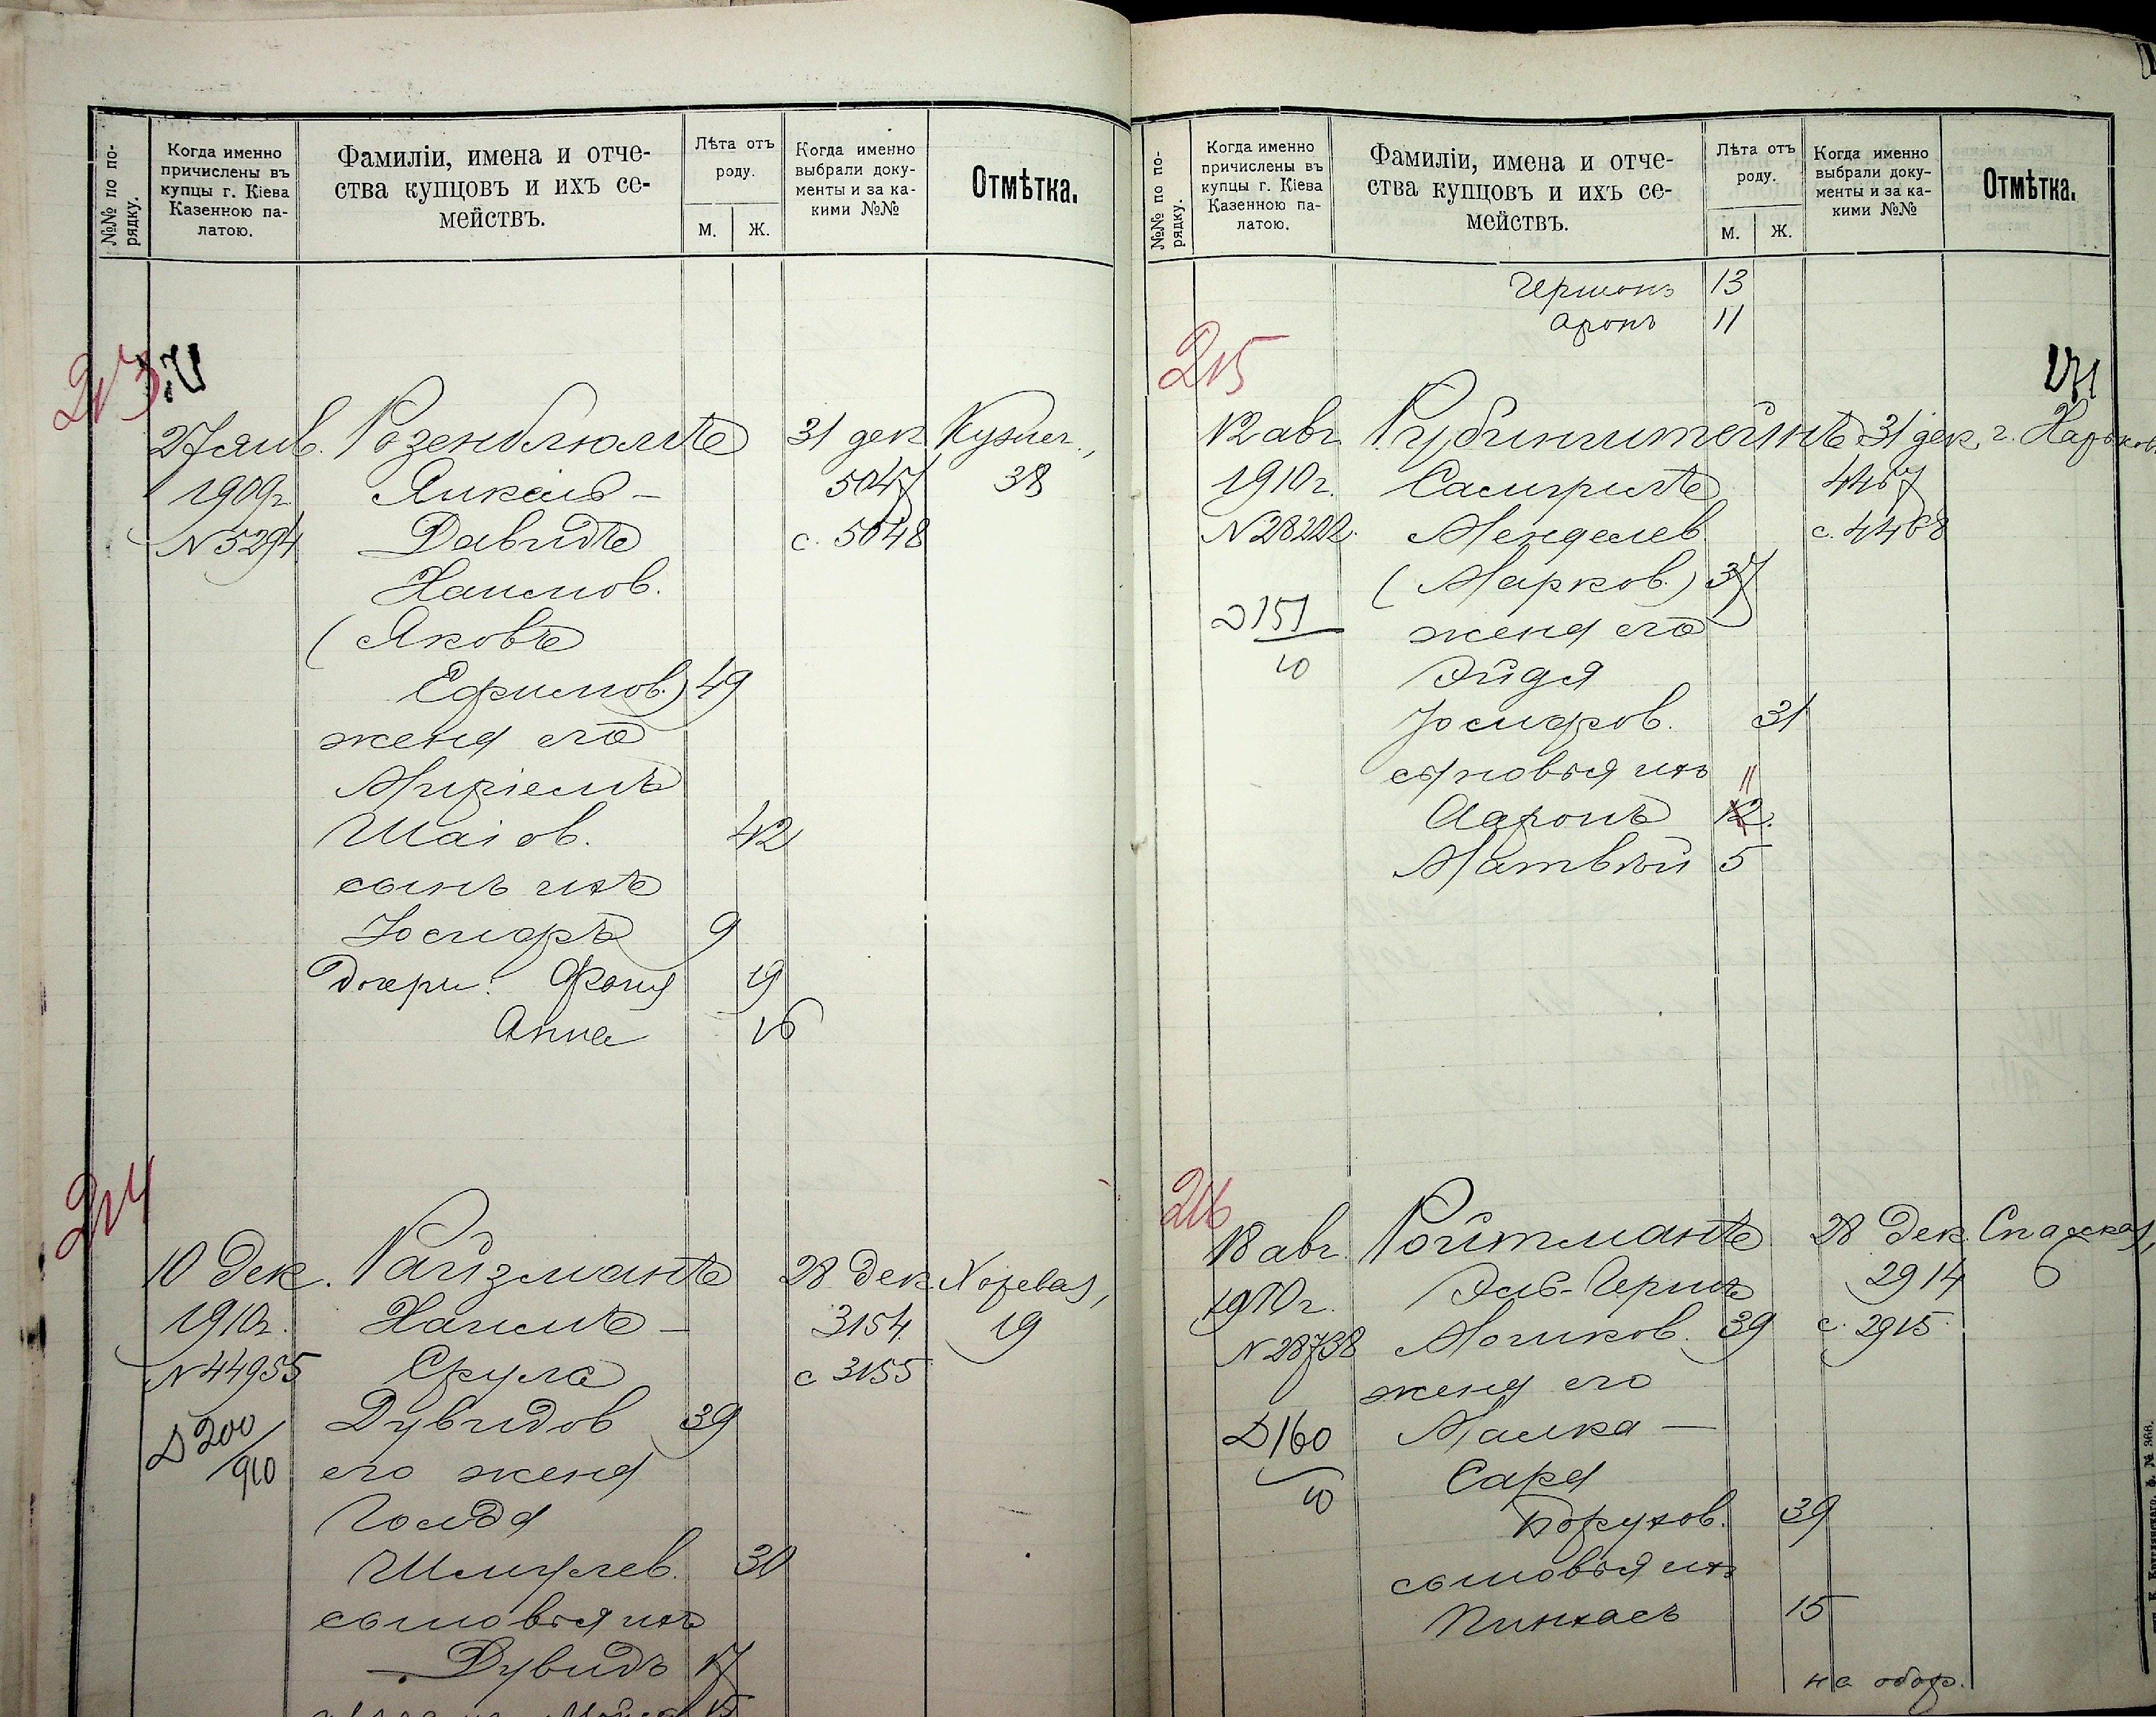 №№ по по-
рядку.
Когда именно
причислены въ
купцы г. Кіева
Казенною па-
латою.
Фамиліи, имена и отче-
ства купцовъ и ихъ се-
мействъ.
Лѣта отъ
роду.
М. Ж.
Когда именно
выбрали доку-
менты и за ка-
кими №№
Отмѣтка.
213
27 янв. Розенблюмъ 31 дек. Кузнеч.,
1909 г. Янкель- 5047 38
N 5294 Давидъ с. 5048
Хаимов.
(Яковъ
Ефимов.) 49
жена его
Миріемъ
Шаіов. 42
сынъ ихъ
Іосифъ 9
Дочери: Фаня 19
Анна 16
214
10 Дек. Райзманъ 28 Дек Хоревая,
1910 г. Хаимъ- 3154 19
N 44955 Срулъ с 3155
Дувидов 39
D 200/910
его жена
Гольда
Шмулев. 30
сыновья ихъ
Дувидъ 17
15
№№ по по-
рядку.
Когда именно
причислены въ
купцы г. Кіева
Казенною па-
латою.
Фамиліи, имена и отче-
ства купцовъ и ихъ се-
мействъ.
Лѣта отъ
роду.
М. Ж.
Когда именно
выбрали доку-
менты и за ка-
кими №№
Отмѣтка.
Гершонъ 13
Аронъ 11
215
171
12 авг. Рубинштейнъ 31 дек. г. Харьков
1910 г. Самуилъ 4467
N 28222. Менделев с. 4468
(Марков.) 37
D 151/10
жена его
Эйдя
Іосифов. 31
сыновья ихъ 11
Ааронъ 12.
Матвѣй 5
216
18 авг. Ройтманъ 28 Дек. Спасская,
1910 г. Эль-Гершъ 2914 6
N 28738 Мошков. 39 с. 2915
жена его
D 160/10
Малка -
Сара
Борухов. 39
сыновья ихъ
Пинхасъ 15
на обор.